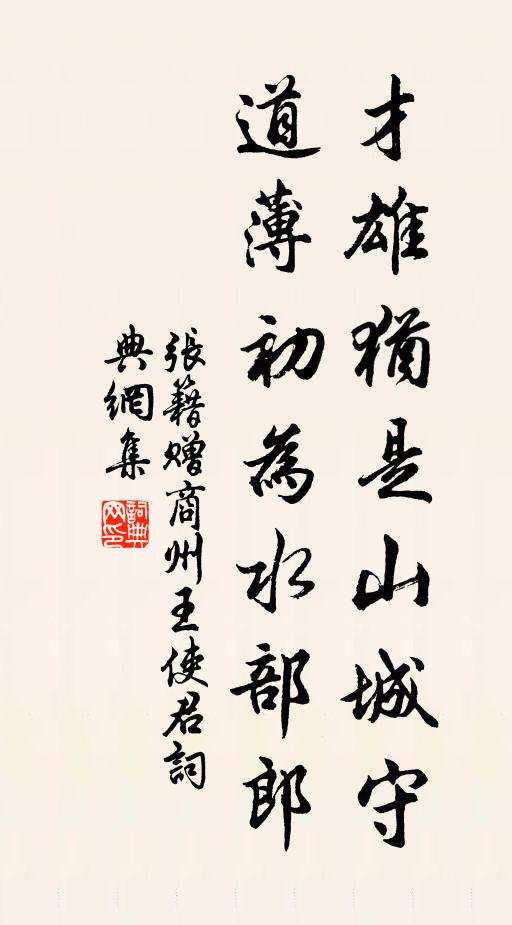 才雄猶是山城守
道薄初為水部郎
張籍贈商州王使君詞
典網集
詞典网印